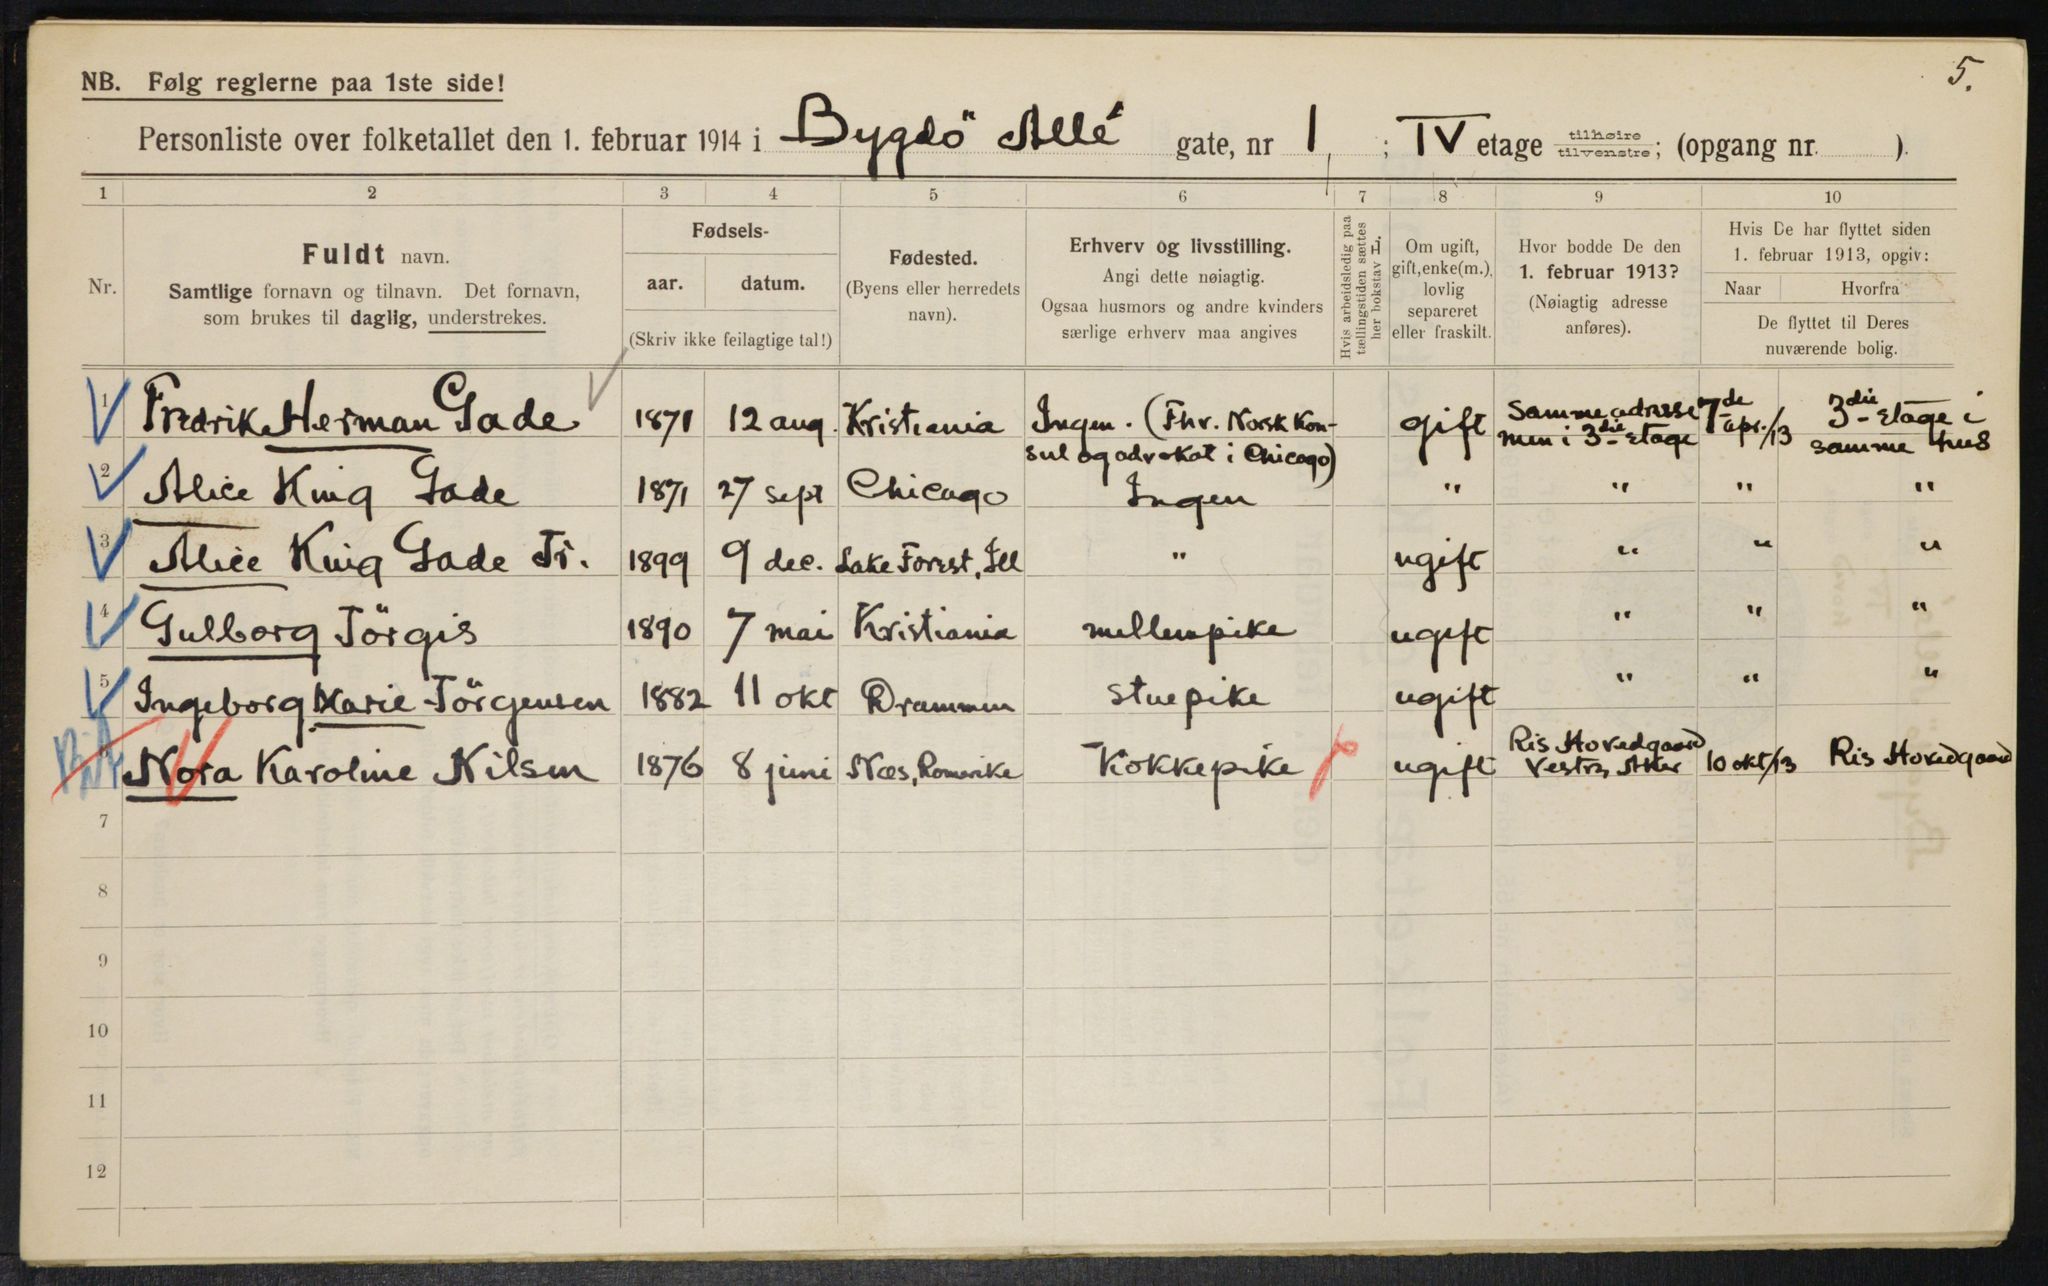 5.
NB. Følg reglerne paa 1ste side!
Personliste over folketallet den 1. februar 1914 i Bygdö Allé gate, nr 1, ; IV etage tilhøire tilvenstre; (opgang nr. ).
1 2 3 4 5 6 7 8 9 10
Nr.
Fuldt navn.
Samtlige fornavn og tilnavn. Det fornavn,
som brukes til daglig, understrekes.
Fødsels-
aar. datum.
(Skriv ikke feilagtige tal!)
Fødested.
(Byens eller herredets
navn).
Erhverv og livsstilling.
Angi dette nøiagtig.
Ogsaa husmors og andre kvinders
særlige erhverv maa angives
Hvis arbeidsledig paa
tællingstiden sættes
her bokstav L.
Om ugift,
gift, enke(m.),
lovlig
separeret
eller fraskilt.
Hvor bodde De den
1. februar 1913?
(Nøiagtig adresse
anføres).
Hvis De har flyttet siden
1. februar 1913, opgiv:
Naar Hvorfra
De flyttet til Deres
nuværende bolig.
1 Fredrik Herman Gade 1871 12 aug. Kristiania Ingen. (Fhv. Norsk Kon-
sul og advokat i Chicago) gift Samme adresse
men i 3die etage 7de
apr./13 3die etage i
samme hus
2 Alice King Gade 1871 27 sept Chicago Ingen " " " "
3 Alice King Gade Jr. 1899 9 dec. Lake Forest, Ill " ugift " " "
4 Gulborg Jörgis 1890 7 mai Kristiania mellempike ugift " " "
5 Ingeborg Marie Jörgensen 1882 11 okt Drammen stuepike ugift " " "
6 Nora Karoline Nilsen 1876 8 juni Næs, Romerike Kokkepike ugift Ris Hovedgaard
Vestre Aker 10 okt/13 Ris Hovedgaard
7
8
9
10
11
12